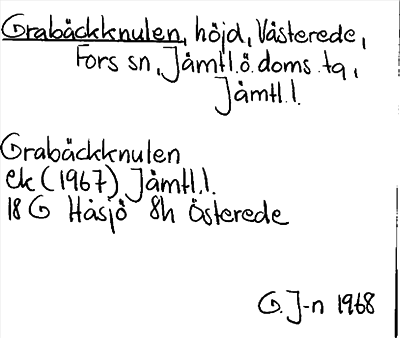 Grabäckknulen, höjd, Västerede,
Fors sn, Jämtl. ö. doms. tg,
Jämtl. l.
Grabäckknulen
ek (1967) Jämtl. l.
18 G Håsjö 8h Österede
G. J-n 1968